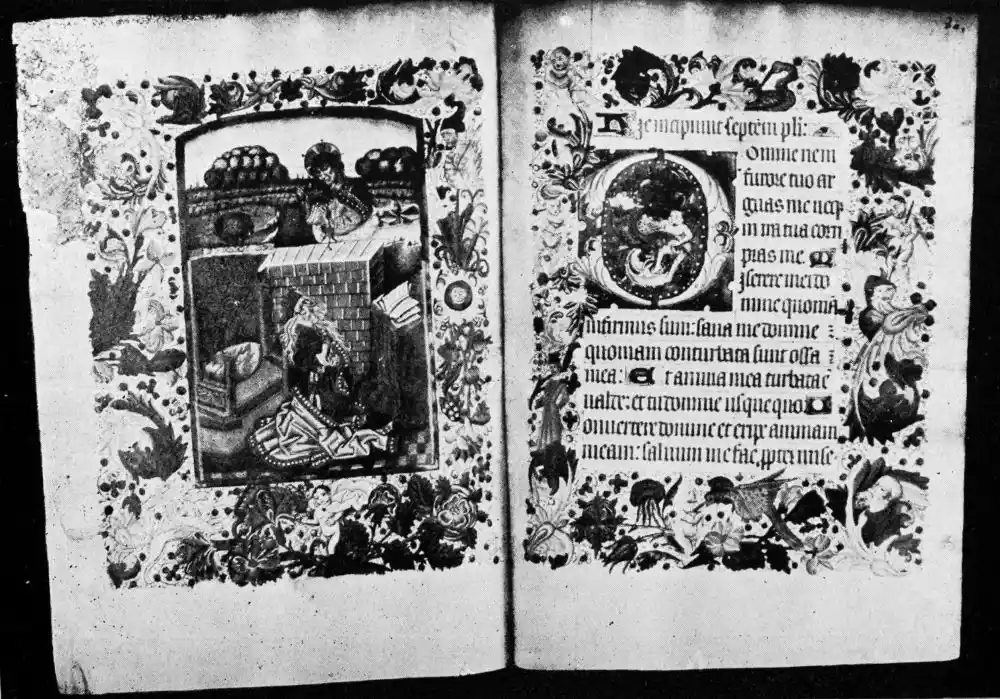 Hic incipiunt septem psl:
Domine ne in
furore tuo ar
guas me neqз
in ira tua corri
pias me. M
iserere mei do
mine quoniā
infirmus sum: sana me domine
quoniam conturbata sunt ossa
mea: Et anima mea turbata e
valde: et tu domine usquequo C
onvertere domine et eripe animam
meam: salvum me fac ppter mise